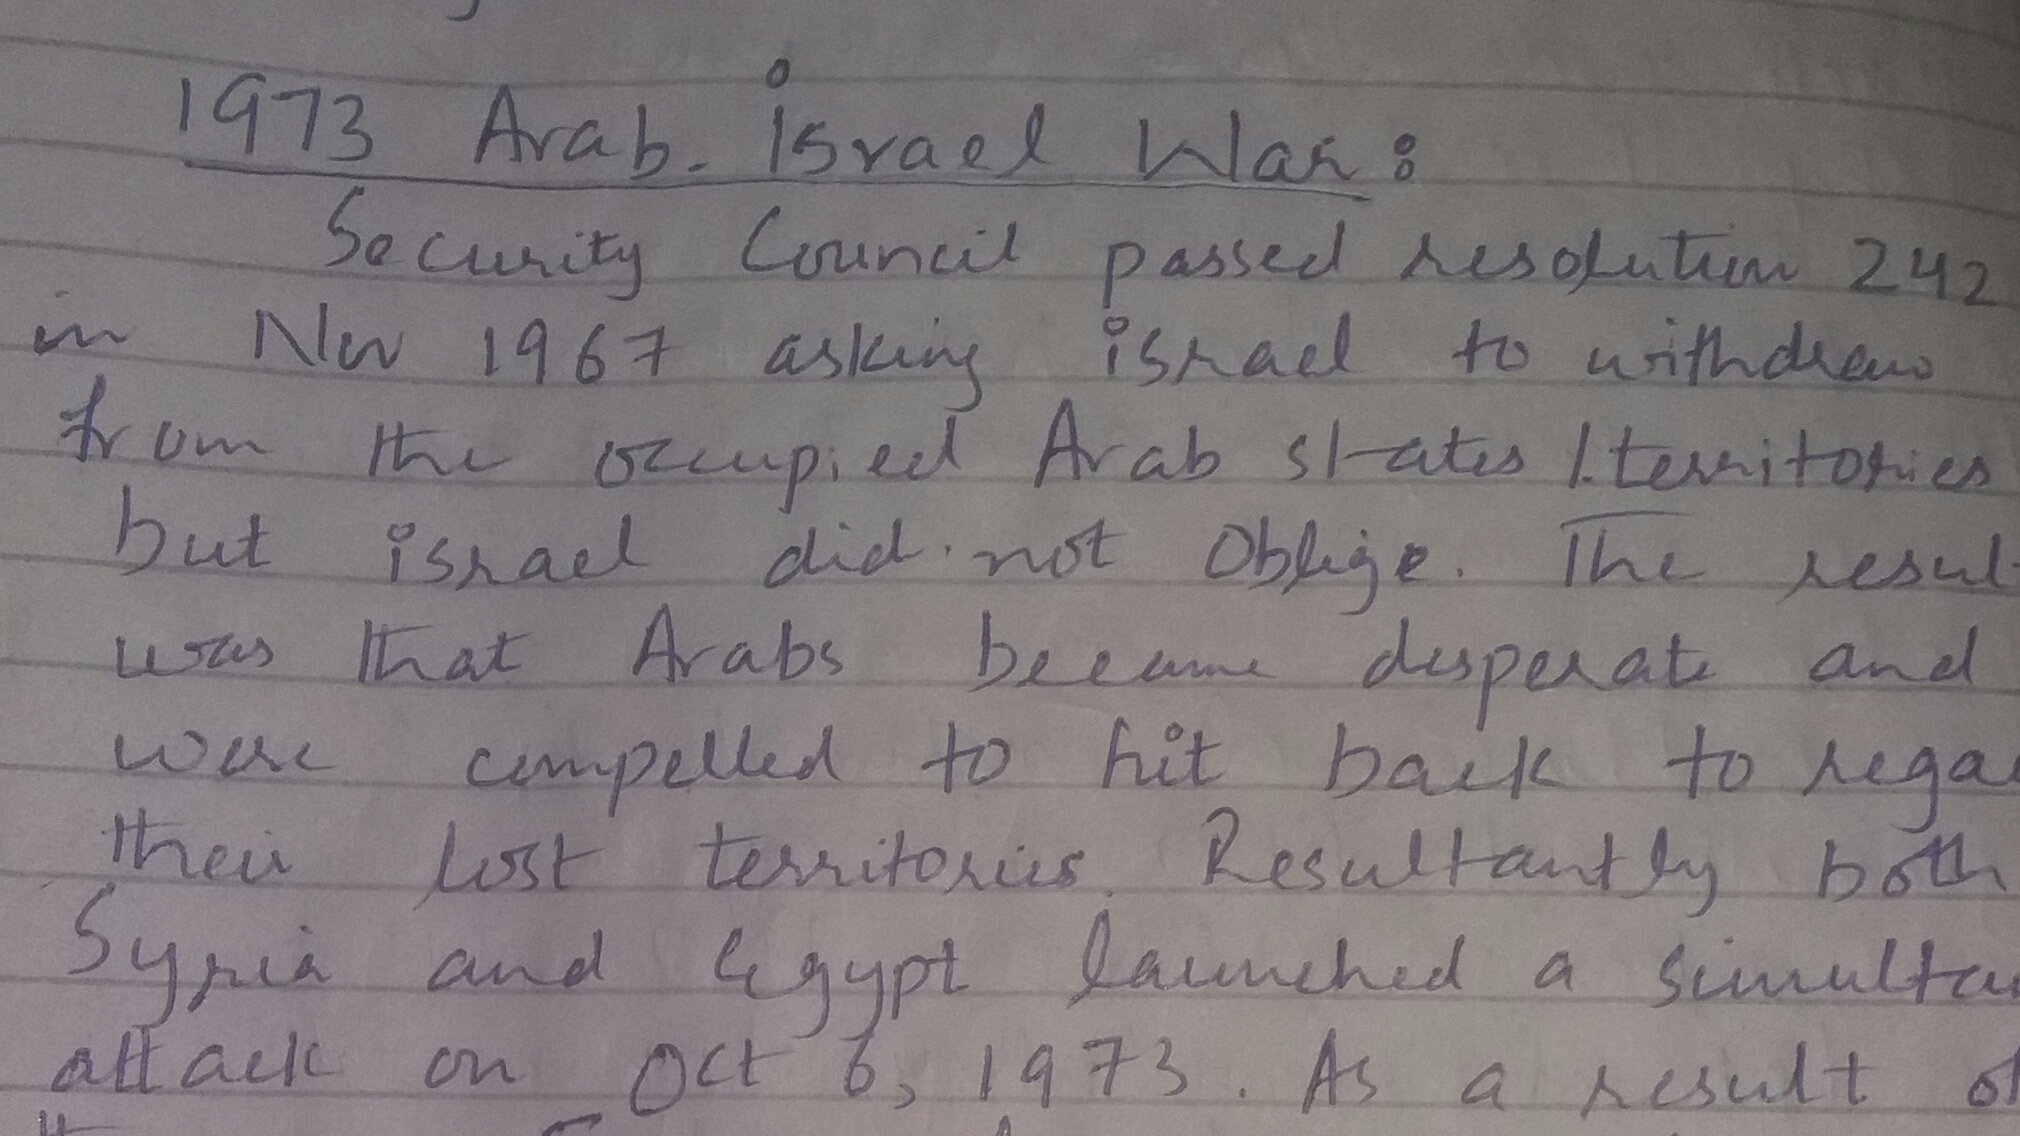 1973 Arab-Israel War:
Security Council passed resolution 242
in Nov 1967 asking israel to withdraw
from the occupied Arab states / territories
but israel did not Oblige. The resul
was that Arabs became desperate and
were compelled to hit back to rega
their lost territories. Resultantly both
Syria and Egypt launched a simulta
attack on Oct 6, 1973. As a result of